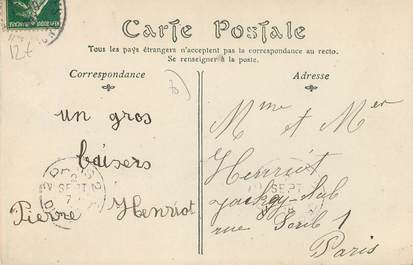 Carte Postale
Tous les pays étrangers n'acceptent pas la correspondance au recto.
Se renseigner à la poste.
Correspondance
Adresse
12€
un gros
baisers
Pierre Henriot
Mme et Mer
Henriot
rue Scrib 1
Paris
SEPT
SEPT